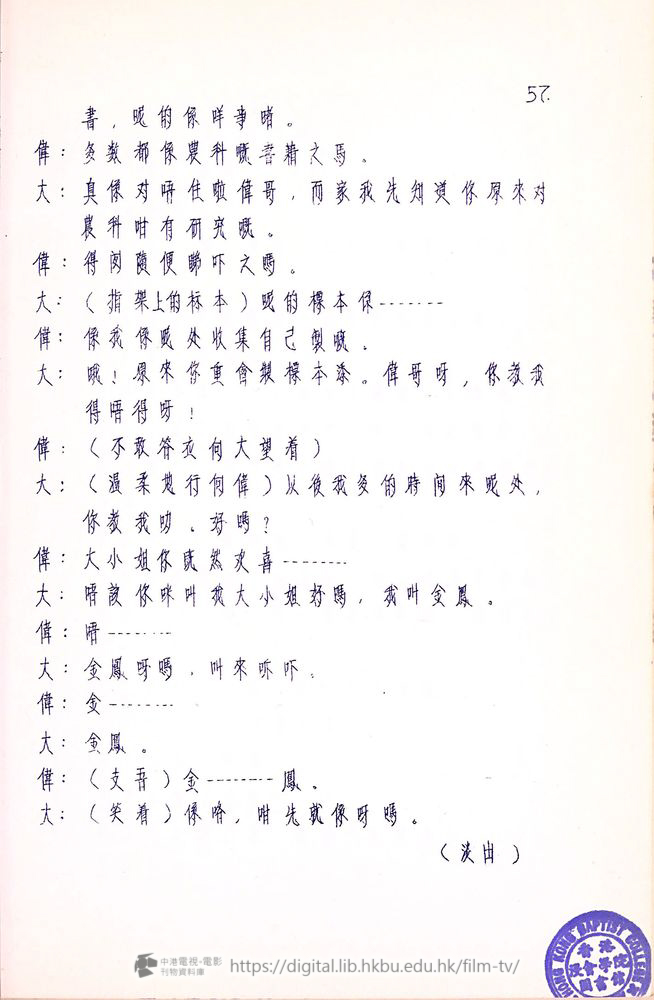 57.
書，呢的係咩事啫。
偉：多数都係農科嘅書籍之馬。
大：真係对唔住啦偉哥，而家我先知道你原來对
農科咁有研究嘅。
偉：得闲隨便睇吓之嗎。
大：（指架上的标本）呢的標本係-------
偉：係我係呢处收集自己製嘅。
大：哦！原來你重會製標本添。偉哥呀，你教我
得唔得呀！
偉：（不敢答应向大望着）
大：（温柔地行向偉）以後我多的時间來呢处，
你教我叻。好嗎？
偉：大小姐你既然欢喜-------
大：唔該你咪叫我大小姐好嗎，我叫金鳳。
偉：唔-------
大：金鳳呀嗎，叫來听吓。
偉：金-------
大：金鳳。
偉：（支吾）金-------鳳。
大：（笑着）係咯，咁先就係呀嗎。
（淡出）
中港電視-電影
刊物資料庫
https://digital.lib.hkbu.edu.hk/film-tv/
HONG KONG BAPTIST COLLEGE
香港
浸會學院
圖書館